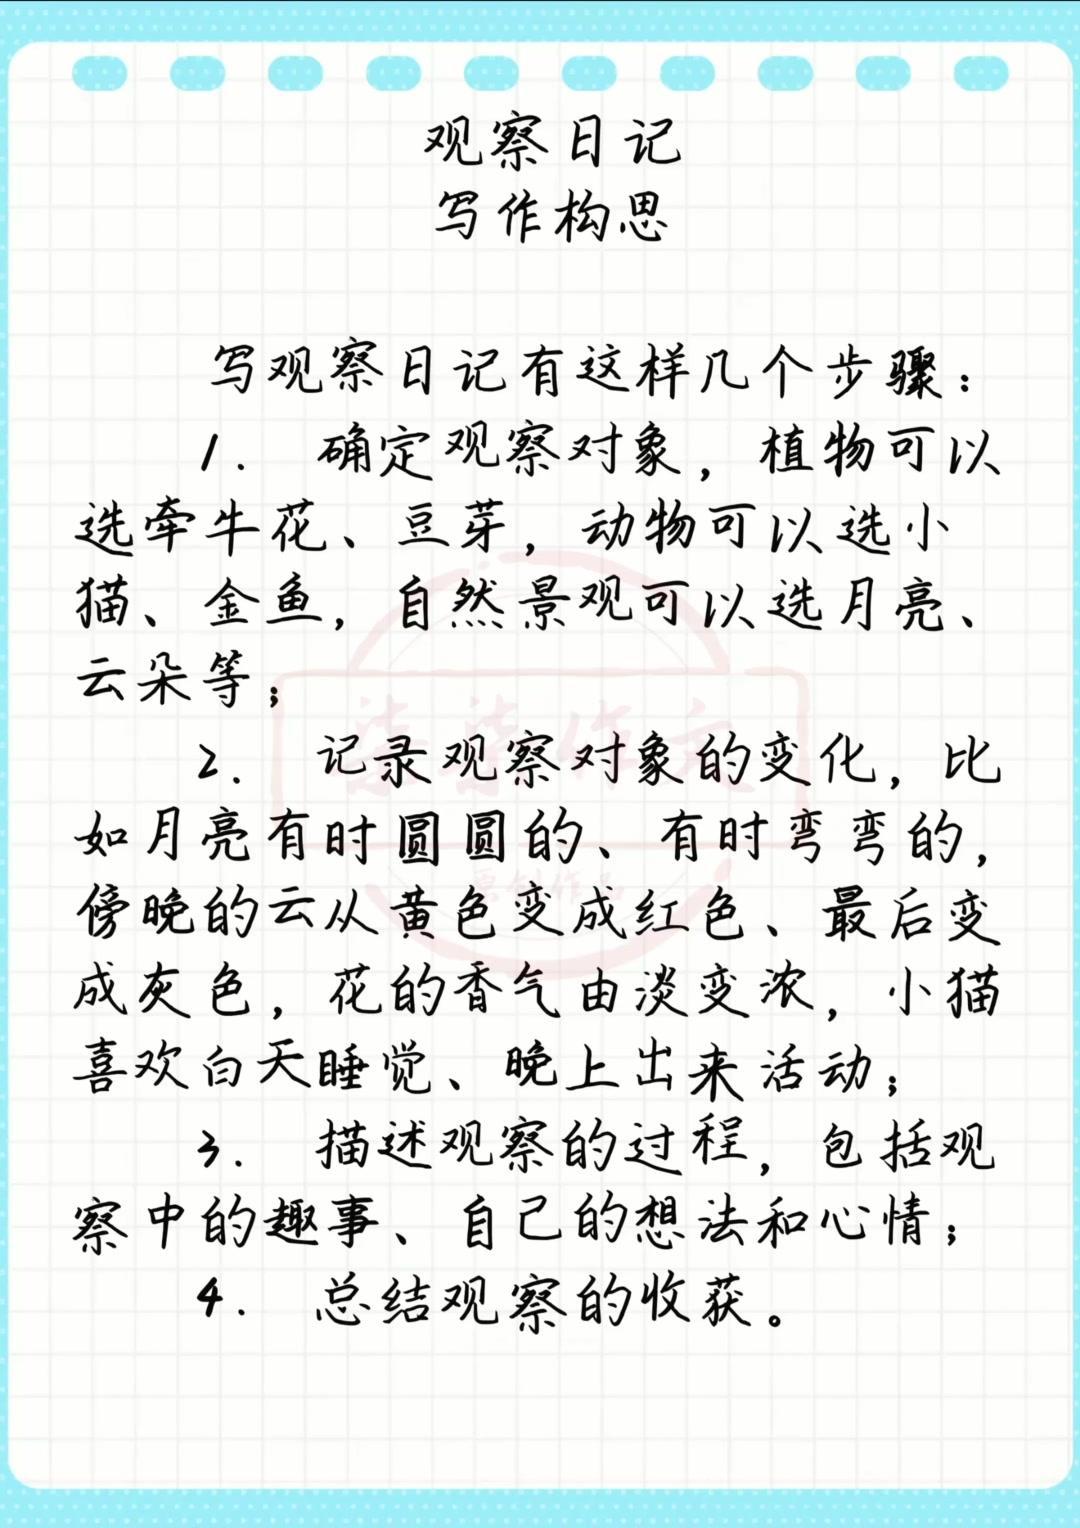 观察日记
写作构思
写观察日记有这样几个步骤：
1. 确定观察对象，植物可以
选牵牛花、豆芽，动物可以选小
猫、金鱼，自然景观可以选月亮、
云朵等；
柒柒作文
2. 记录观察对象的变化，比
如月亮有时圆圆的、有时弯弯的，
原创作品
傍晚的云从黄色变成红色、最后变
成灰色，花的香气由淡变浓，小猫
喜欢白天睡觉、晚上出来活动；
3. 描述观察的过程，包括观
察中的趣事、自己的想法和心情；
4. 总结观察的收获。